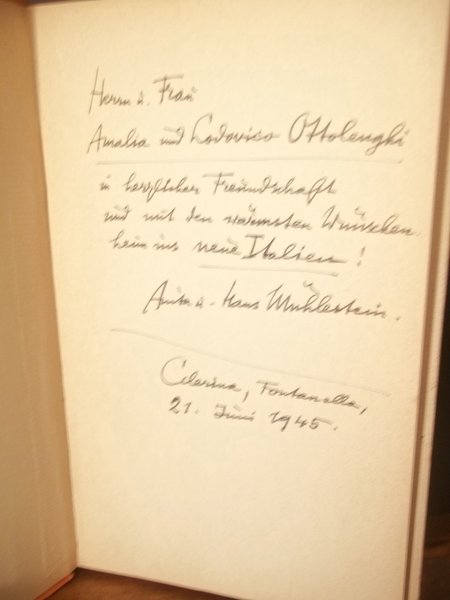 Herrn u. Frau
Amalia und Lodovico Ottolenghi
in herzlicher Freundschaft
und mit den wärmsten Wünschen
heim ins neue Italien!
Anita u. Hans Mühlestein.
Celerina, Fontanella,
21. Juni 1945.